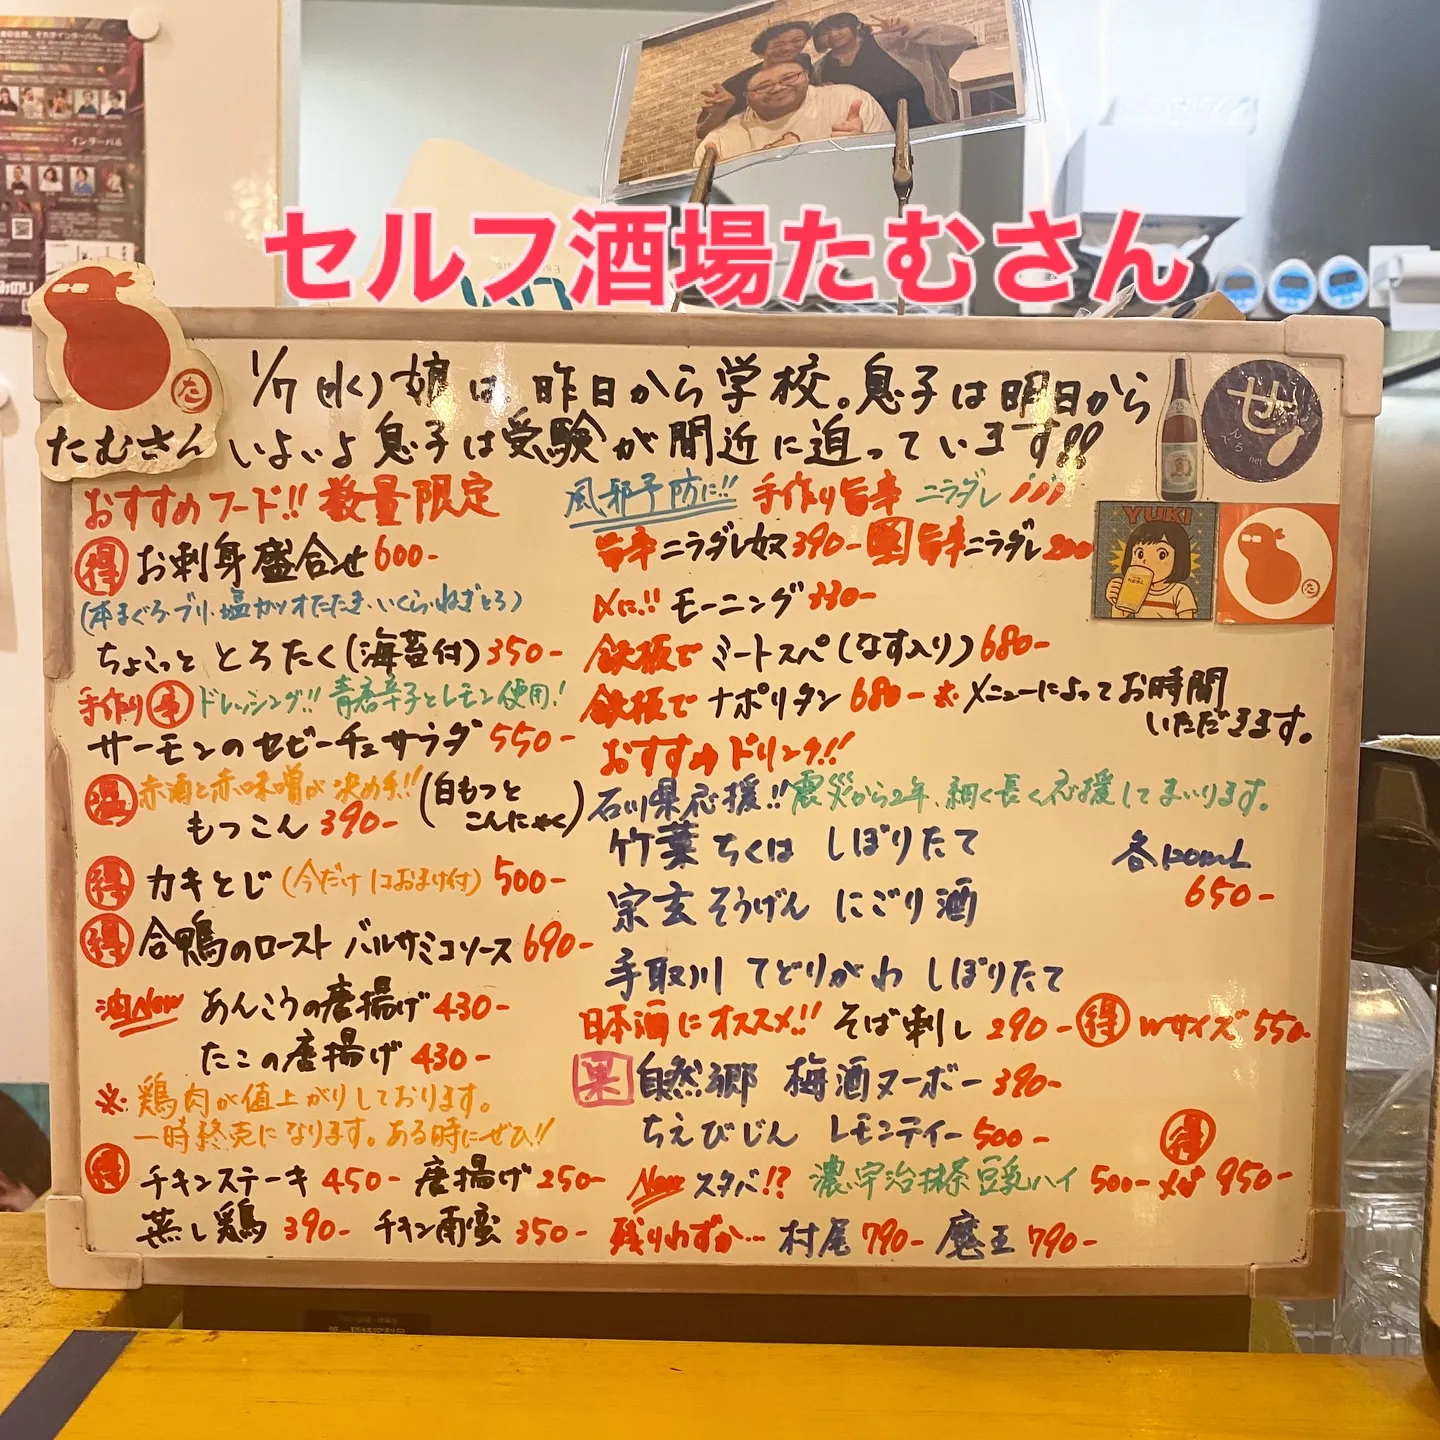 セルフ酒場たむさん
1/7(水)娘は昨日から学校。息子は明日から
いよいよ息子は受験が間近に迫っています!!
たむさん
た
せ
YUKI
おすすめフード!! 数量限定
得 お刺身盛合せ 600-
(本まぐろ・ブリ・塩カツオたたき・いくら・ねぎとろ)
ちょこっと とろたく(海苔付) 350-
手作り 辛 ドレッシング!! 青唐辛子とレモン使用!
サーモンのセビーチェサラダ 550-
温 赤酒と赤味噌が決め手!!
もつこん 390- (白もつとこんにゃく)
得 カキとじ (今だけ におまけ付) 500-
得 合鴨のロースト バルサミコソース 690-
油New あんこうの唐揚げ 430-
たこの唐揚げ 430-
※鶏肉が値上がりしております。
一時終売になります。ある時にぜひ!!
得 チキンステーキ 450- 唐揚げ 250-
蒸し鶏 390- チキン南蛮 350-
風邪予防に!! 手作り旨辛 ニラダレ
旨辛ニラダレ奴 390- 旨辛ニラダレ 200
〆に!! モーニング 330-
鉄板で ミートスペ(なす入り) 680-
鉄板で ナポリタン 680- ※メニューによってお時間
いただきます。
おすすめドリンク!!
石川県応援!! 震災から2年、細く長く応援してまいります。
竹葉 ちくは しぼりたて
各120mL
650-
宗玄 そうげん にごり酒
手取川 てどりがわ しぼりたて
日本酒にオススメ!! そば刺し 290- 得 Wサイズ 550-
果 自然郷 梅酒ヌーボー 390-
ちえびじん レモンティー 500-
得
New スタバ!? 濃い宇治抹茶豆乳ハイ 500- メガ 950-
残りわずか… 村尾 790- 魔王 790-